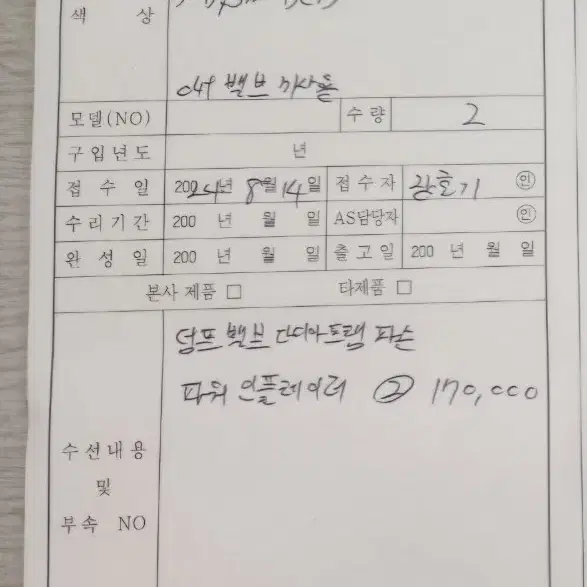 색 상
밸브
모델(NO) 수량 2
구입년도 년
접수일 2024년 8월 14일 접수자 인
수리기간 200 년 월 일 AS담당자 인
완성일 200 년 월 일 출고일 200 년 월 일
본사 제품 □ 타제품 □
덤프 밸브 다이아프램 파손
파워 인플레이터 ② 170,000
수선내용
및
부속 NO